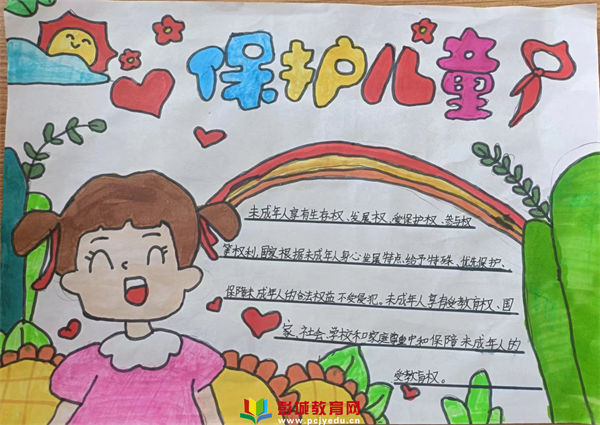 保护儿童
未成年人享有生存权、发展权、受保护权、参与权
等权利,国家根据未成年人身心发展特点给予特殊、优先保护、
保障未成年人的合法权益不受侵犯。未成年人享有受教育权、国
家、社会、学校和家庭尊重和保障未成年人的
受教育权。
彭城教育网
www.pcjyedu.cn